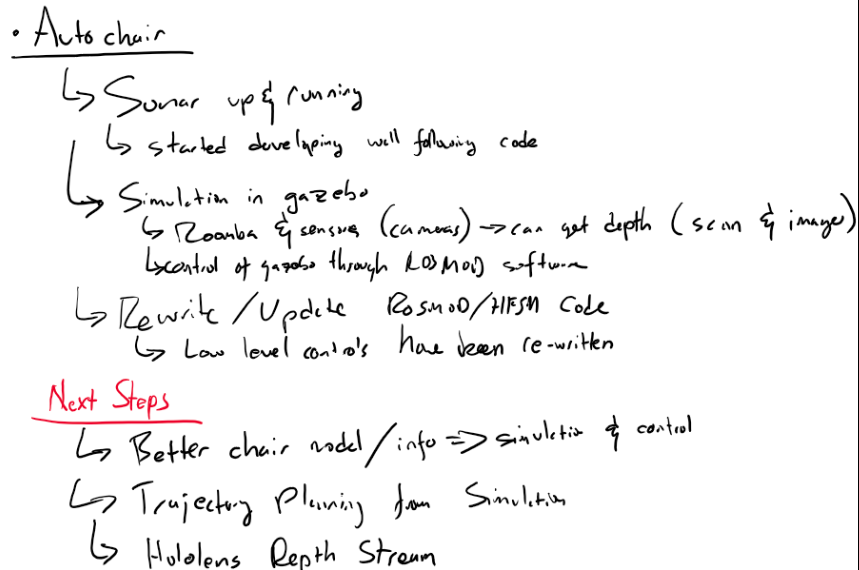 • Auto chair
↳ Sonar up & running
↳ started developing wall following code
↳ Simulation in gazebo
↳ Roomba & sensors (cameras) → can get depth (scan & image)
↳ control of gazebo through ROSMOD software
↳ Rewrite / Update ROSMOD/HFSM Code
↳ Low level control's have been re-written
Next Steps
↳ Better chair model / info => simulation & control
↳ Trajectory Planning from Simulation
↳ Hololens Depth Stream